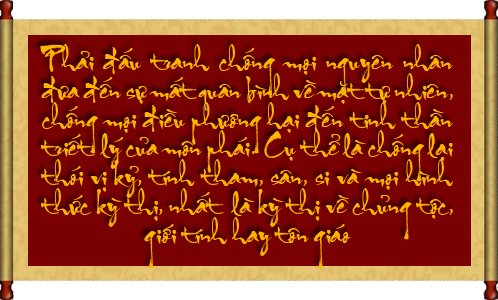 Phải đấu tranh chống mọi nguyên nhân
đưa đến sự mất quân bình về mặt tự nhiên,
chống mọi điều phương hại đến tinh thần
triết lý của môn phái. Cụ thể là chống lại
thói vị kỷ, tính tham, sân, si và mọi hình
thức kỳ thị, nhất là kỳ thị về chủng tộc,
giới tính hay tôn giáo